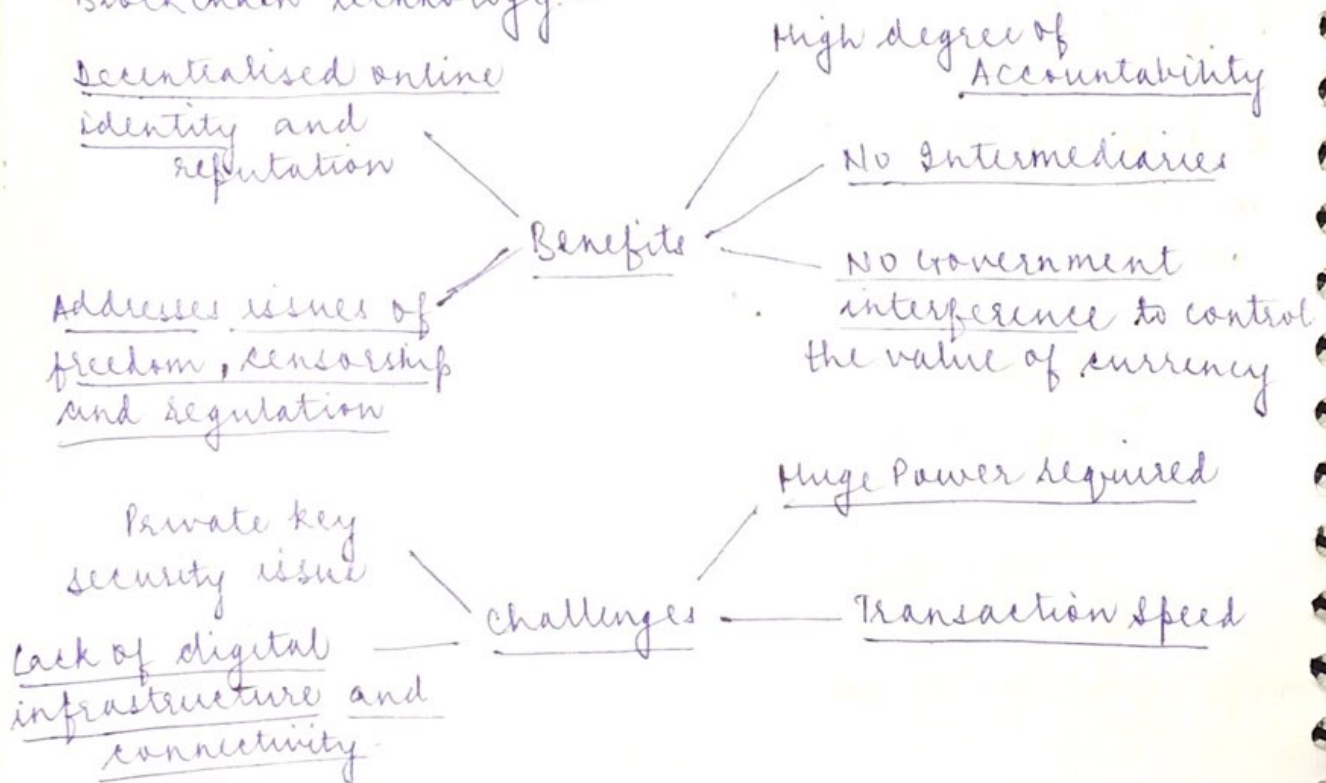 Blockchain technology.
Decentralised online
identity and
reputation
High degree of
Accountability
No Intermediaries
Benefits
No Government
interference to control
the value of currency
Addresses issues of
freedom, censorship
and regulation
Huge Power required
Private key
security issue
Challenges
Transaction Speed
Lack of digital
infrastructure and
connectivity.